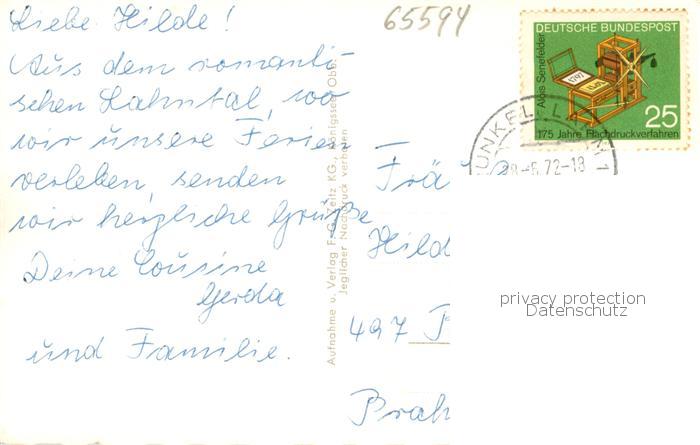 Liebe Hilde!
Aus dem romanti-
schen Lahntal, wo
wir unsere Ferien
verleben, senden
wir herzliche Grüße
Deine Cousine
Gerda
und Familie.
65594
Aufnahme u. Verlag F. G. Zeitz KG., Königssee/Obb.
Jeglicher Nachdruck verboten
DEUTSCHE BUNDESPOST
Alois Senefelder
1797
25
175 Jahre Flachdruckverfahren
UNKEL
-5.72-18
Frä
Hild
497
Brah
privacy protection
Datenschutz